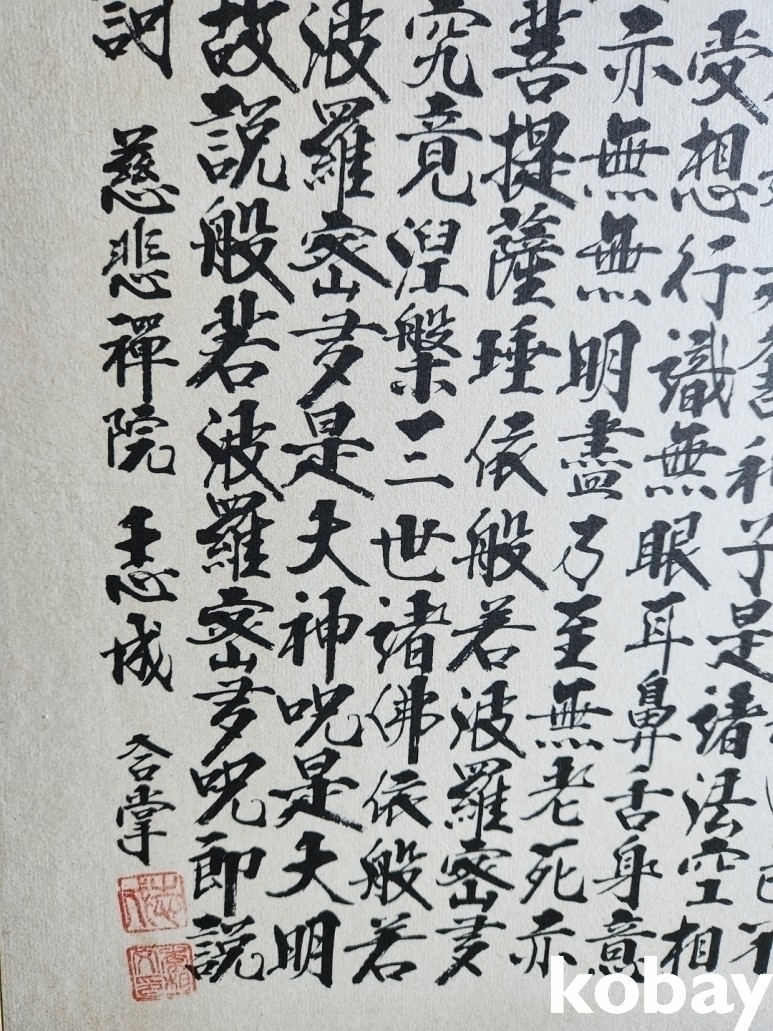 舍利子是諸法空相
受想行識無眼耳鼻舌身意
亦無無明盡乃至無老死亦
菩提薩埵依般若波羅密多
究竟涅槃三世諸佛依般若
波羅密多是大神呪是大明
故説般若波羅密多呪即説
訶 慈悲禪院 合掌
kobay